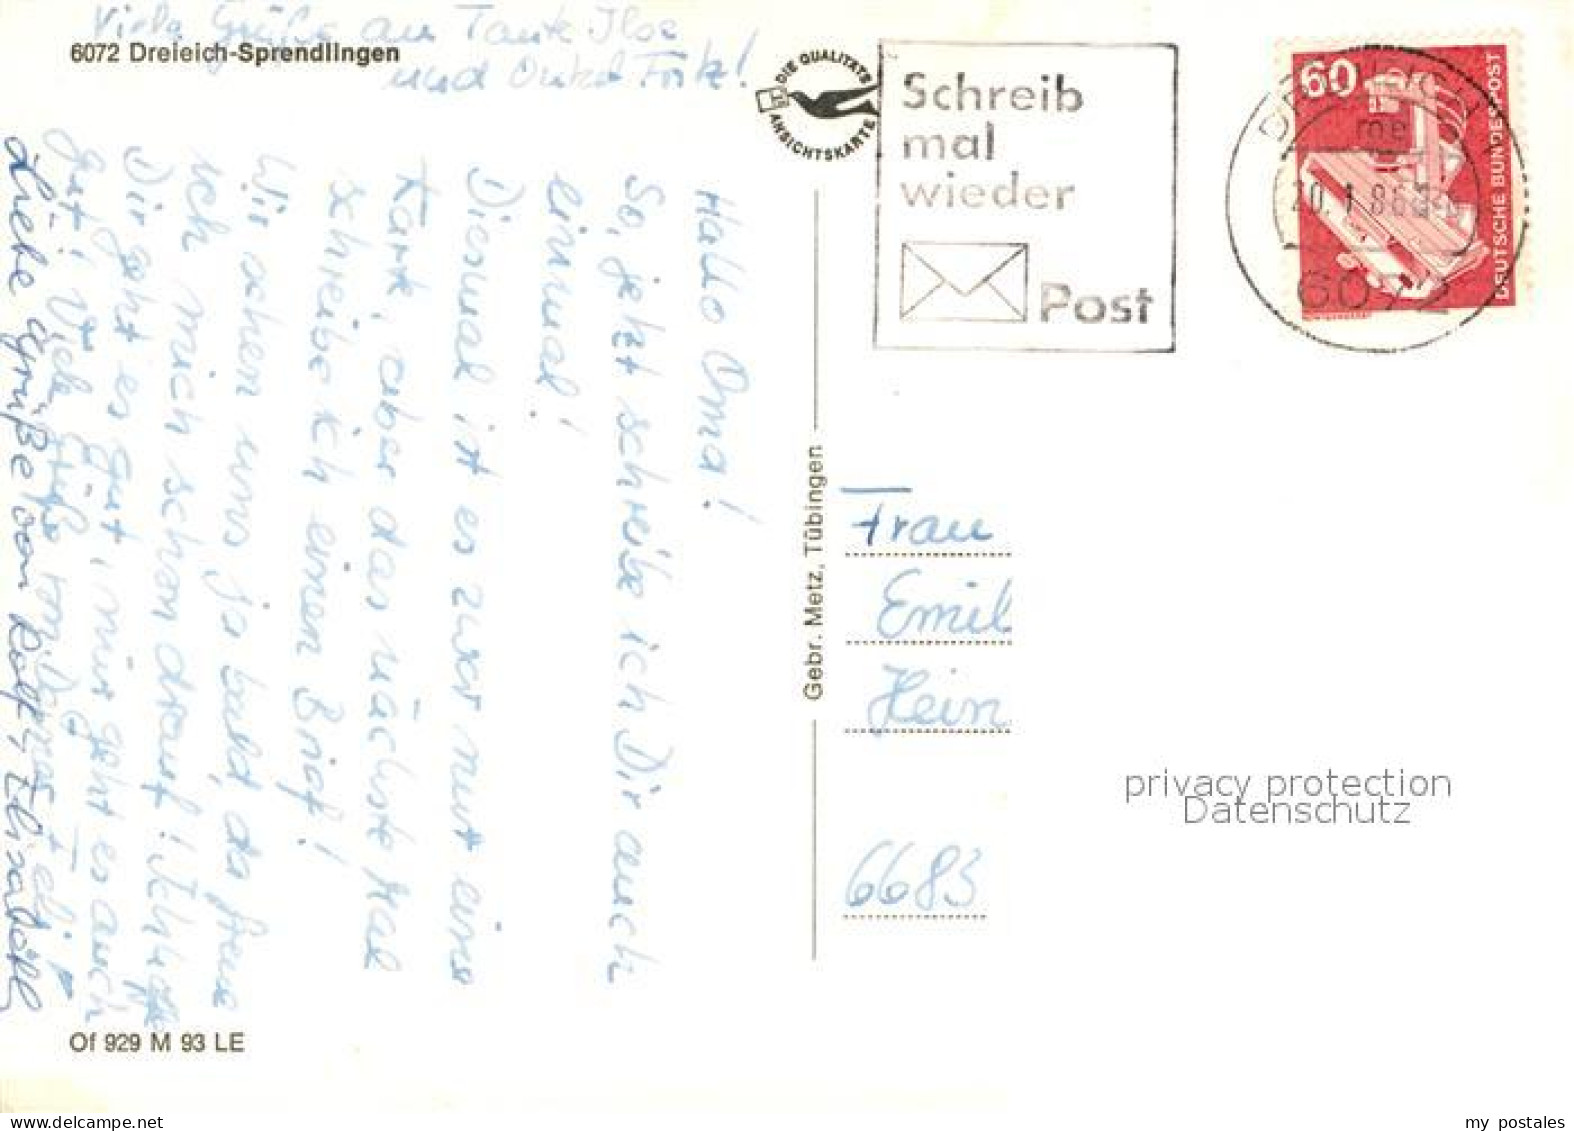 Viele Grüße an Tante Ilse
und Onkel Fritz!
6072 Dreieich-Sprendlingen
Hallo Oma!
So, jetzt schreibe ich Dir auch
einmal!
Diesmal ist es zwar nur eine
Karte, aber das nächste Mal
schreibe ich einen Brief!
Wir sehen uns ja bald, da freue
ich mich schon drauf! Ich hoffe
Dir geht es gut, mir geht es auch
gut! Viele Grüße von
Liebe Grüße von Rolf, Elisabeth
Of 929 M 93 LE
Gebr. Metz, Tübingen
DIE QUALITÄTS
ANSICHTSKARTE
Schreib
mal
wieder
Post
60
DEUTSCHE BUNDESPOST
me
20.1.86
6072
Frau
Emil
Hein
6683
privacy protection
Datenschutz
my postales